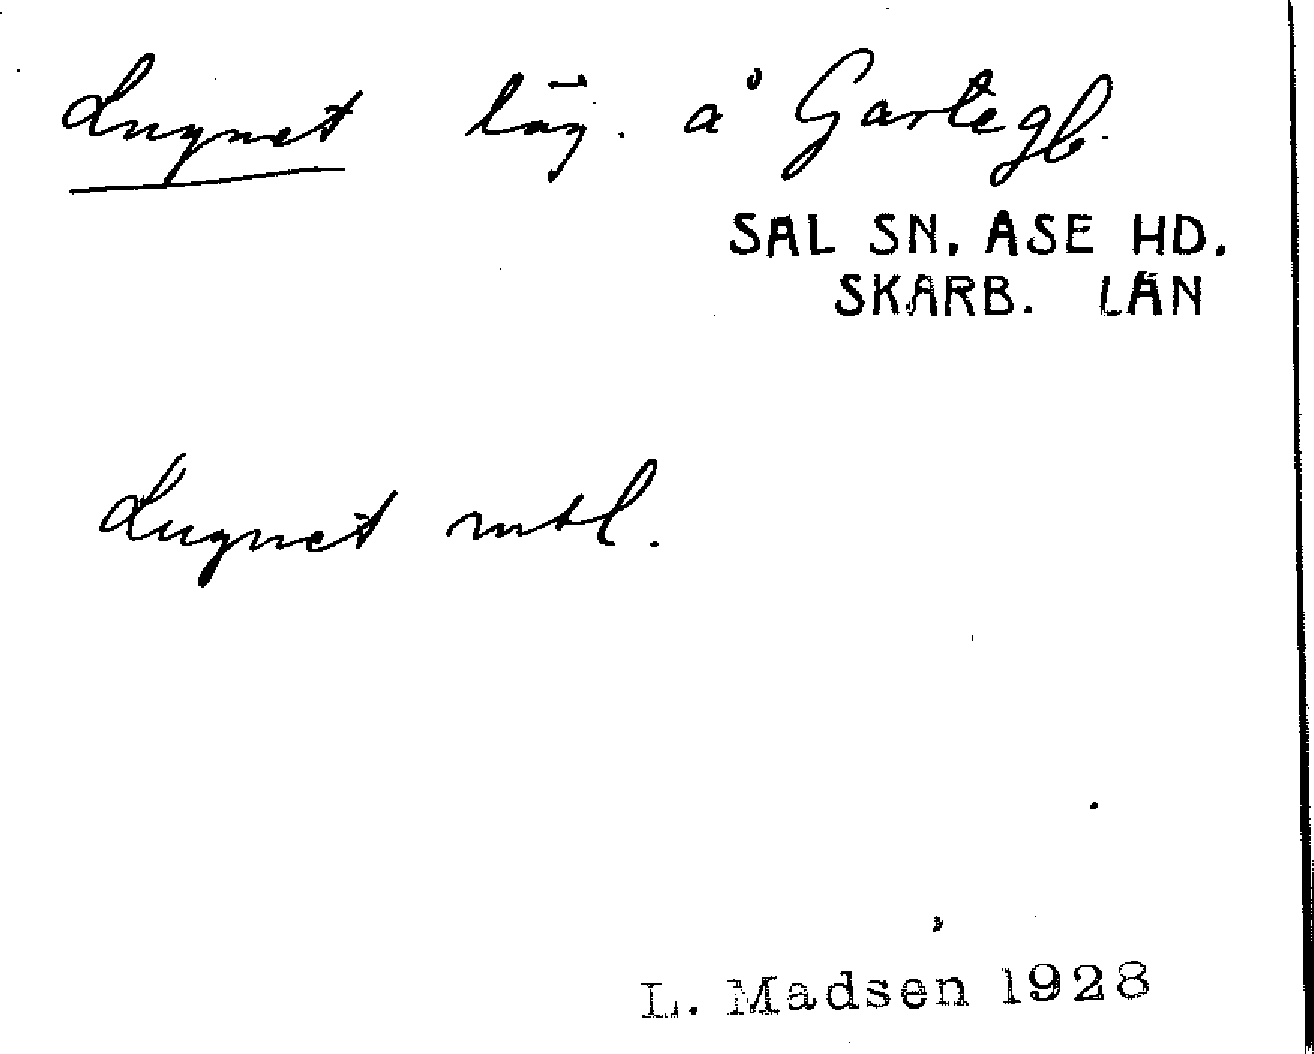 Lugnet läg. å Gartegb.
SAL SN. ASE HD.
SKARB. LÄN
Lugnet mtl.
L. Madsen 1928